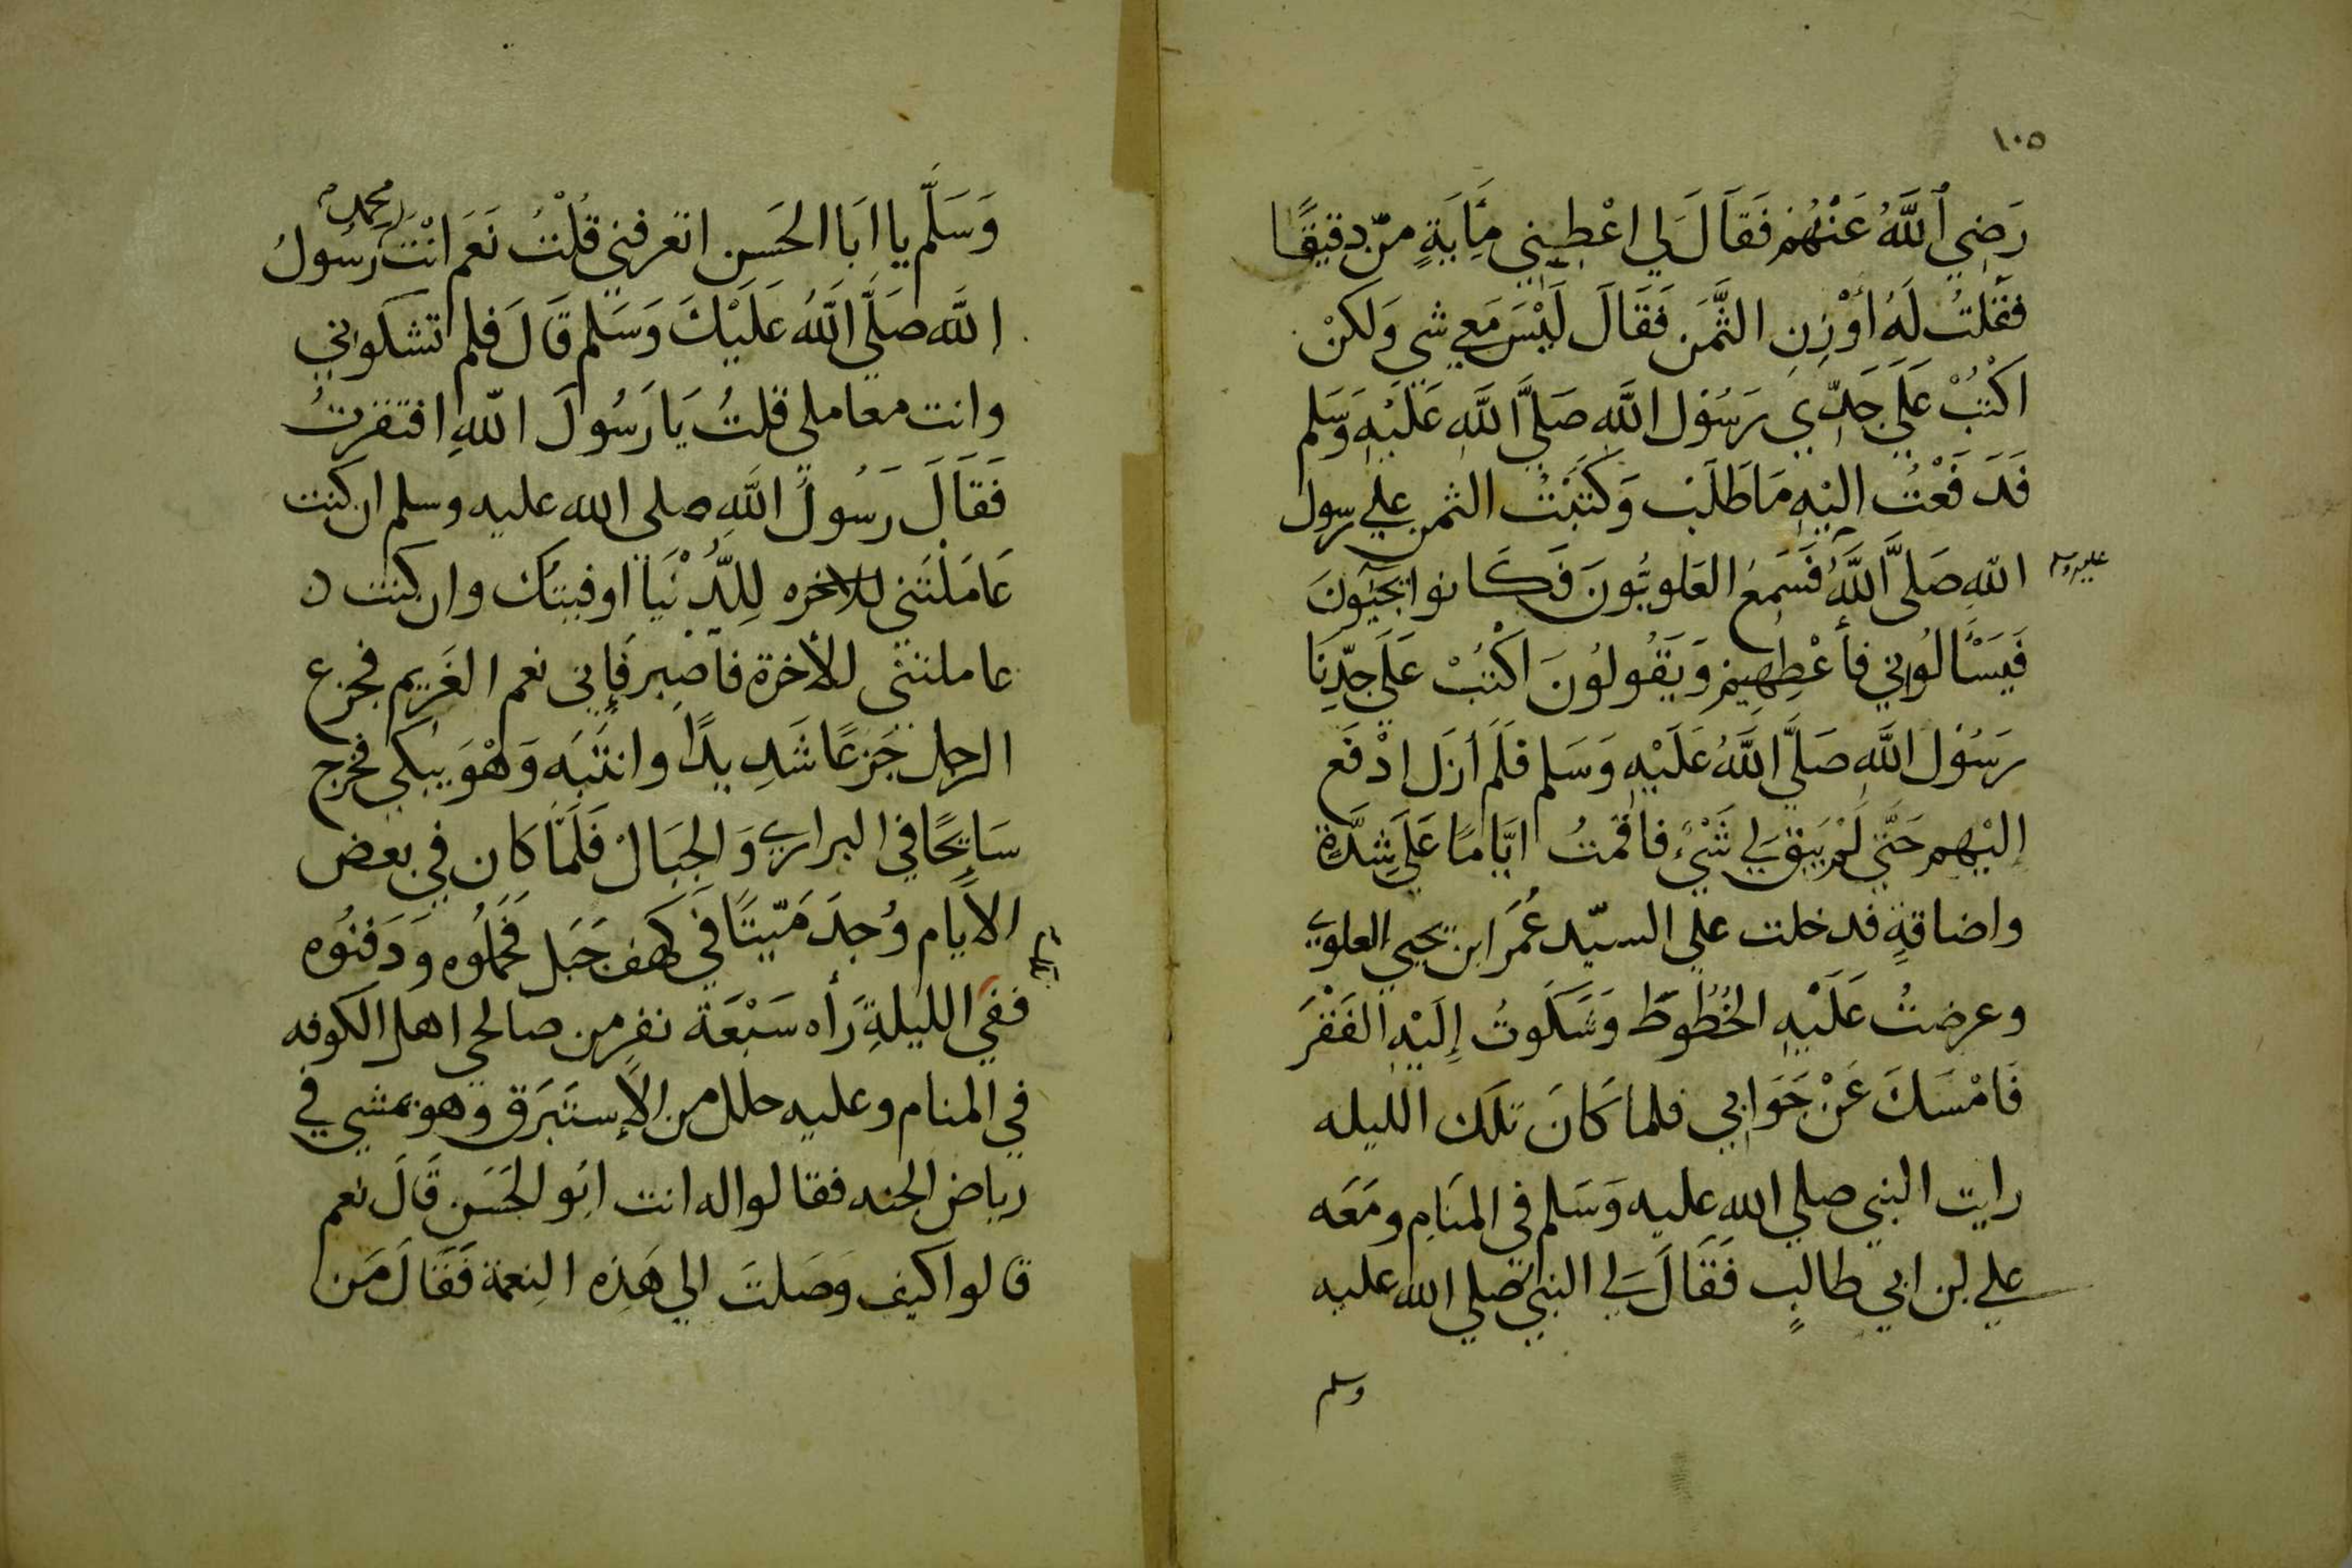 ١٠٥
رَضِي ٱللَّهُ عَنْهُمْ فَقَالَ لَي اعْطِينِي مِايَةٍ مَنّ دقيقًا
فقُلتُ لَهُ أوْزِنِ الثَّمَن فَقَالَ لَيْسَ مَعِي شي وَلَكنْ
اكْتُبْ عَلَي جَدِّي رَسُوْل اللَّهِ صَلَّي اللَّه عَلَيْهِ وَسَلم
فَدَفَعْتُ اليْهِ مَا طَلَبَ وَكَتَبْتُ الثمن علي رسول
اللهِ صَلَّي اللَّهُ فَسَمِعُ العَلويُّونَ فَكَانوا يجيُونَ
عليه وسلم
فَيَسْالُوني فأعْطِهِيمْ وَيَقُولُونَ اكْتُبْ عَلَي جدِّنَا
رَسُوْل اللَّهِ صَلَّي اللَّهُ عَلَيْهِ وَسَلم فَلَمْ أزَل ادْفَع
إليْهِم حَتَّي لَمْ يَبْقَ لي شَيْءٌ فاقمتُ ايَّامًا عَلَي شِدَّةٍ
واضاقةٍ فدخلت علي السيّد عُمَر ابن يحيي العلوي
وعرضتُ عَلَيْهِ الخُطُوطَ وَشَكَوتُ إِلَيْهِ الفَقْرَ
فَامْسَكَ عَنْ جَوَابي فلما كَانَ تلك الليله
رايت النبي صلي الله عليه وَسَلم في المنَامِ ومَعَه
علي بن ابي طالبٍ فَقَالَ لي النبي صلي الله عليه
وسلم
وَسَلَّم يا ابَا الحَسَن اتعرفني قُلْتُ نَعَم انْتَ محمد رَسُولُ
اللَّه صَلَّي اللَّهُ عَلَيْكَ وَسَلم قَالَ فلم تشكواني
وانت معاملي قلتُ يَا رَسُولَ اللهِ افتقرتُ
فَقَالَ رَسُولُ اللَّهِ صلي الله عليه وسلم ان كنت
عَامَلْتَني للاخره لِلدُّنْيَا اوفيتك وان كنت
عاملتني للأخرة فاصبِر فَإِني نعم الغَرِيم فجزع
الرجل جَزعًا شَدِيدًا وانتَبَه وَهْوَ يبكي فخرج
سَايحًا في البراري وَالجِبَالْ فَلَمَّا كان في بعض
الأيام وُجدَ مَيّتًا في كهف جَبَل فَحَمَلُوه وَدَفنُوه
ففي الليلةِ رَأه سَبْعَة نفرٍ من صالحي اهل الكوفه
في المنام وعليه حلل من الإستَبَرَق وهو يمشي في
رياض الجنه فقالوا له انت ابُو الحَسَن قَالَ نعم
قالوا كيف وَصَلتَ الي هَذِه النِعمة فَقَالَ مَن